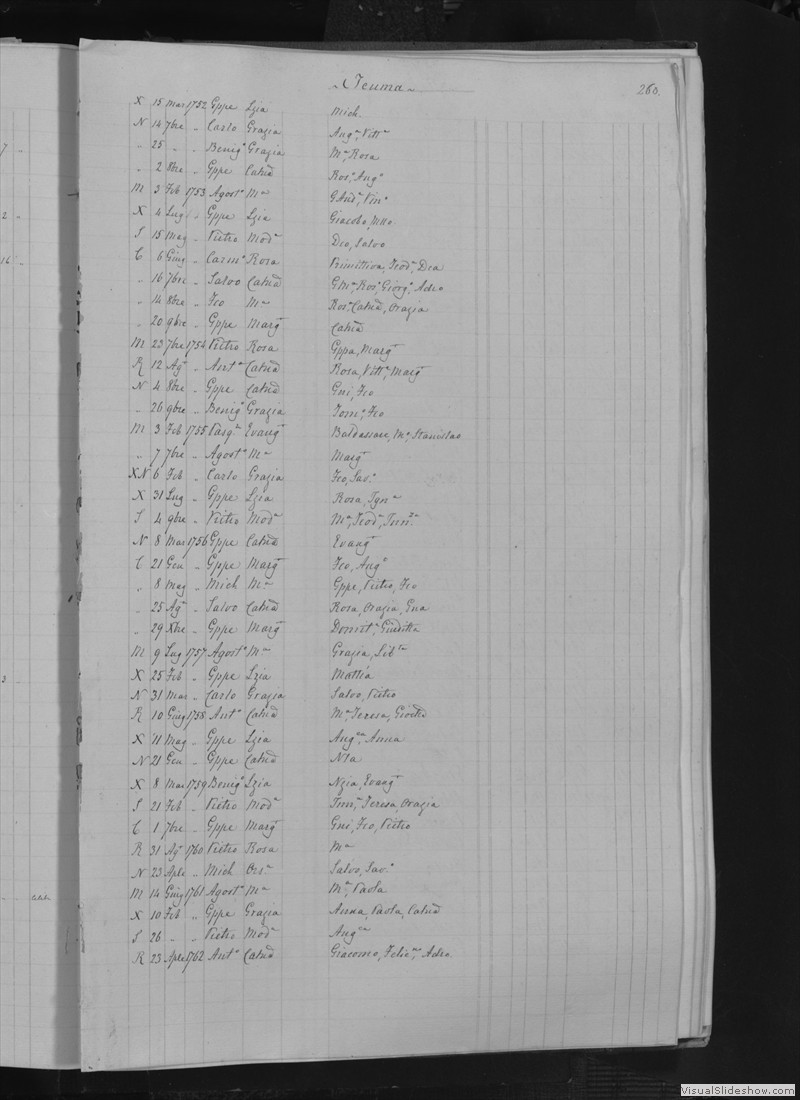 Teuma
260.
X 15 Mar 1752 Gppe Lzia Mich
N 14 7bre " Carlo Grazia Angª, Vittª
" 25 " " Benigº Grazia Mª, Rosa
" 2 8bre " Gppe Catnª Rosª, Angº
M 3 Feb 1753 Agostº Mª
X 4 Lug " Gppe Lzia Giacobo,
S 15 Mag " Pietro Modª Deo, Salvo
C 6 Giug " Carmª Rosa Primittiva, Teodª, Dea
" 16 7bre " Salvo Catnª GMª, Rosª, Giorgº, Adeo
" 14 8bre " Fco Mª Rosª, Catnª, Orazia
" 20 9bre " Gppe Margª Catnª
M 23 7bre 1754 Pietro Rosa Gppa, Margª
R 12 Agº " Antº Catnª Rosa, Vittª, Margª
N 4 8bre " Gppe Catnª Gni, Fco
" 26 9bre " Benigº Grazia Tomº, Fco
M 3 Feb 1755 Pasqle Evangª Baldassare, Mª, Stanislao
" 7 7bre " Agostº Mª Margª
XN 6 Feb " Carlo Grazia Fco, Savº
X 31 Lug " Gppe Lzia Rosa, Ignª
S 4 9bre " Pietro Modª Mª, Teodª,
N 8 Mar 1756 Gppe Catnª Evangª
C 21 Gen " Gppe Margª Fco, Angº
" 8 Mag " Mich Mª Gppe, Pietro, Fco
" 25 Agº " Salvo Catnª Rosa, Orazia, Gna
" 29 Xbre " Gppe Margª Domtª, Giuditta
M 9 Lug 1757 Agostº Mª Grazia, Libª
X 25 Feb " Gppe Lzia Mattia
N 31 Mar " Carlo Grazia Salvo, Pietro
R 10 Giug 1758 Antº Catnª Mª, Teresa,
X 11 Mag " Gppe Lzia Angca, Anna
N 21 Gen " Gppe Catnª Nla
X 8 Mar 1759 Benigº Lzia Nzia, Evangª
S 21 Feb " Pietro Modª Teresa, Orazia
C 1 7bre " Gppe Margª Gni, Fco, Pietro
R 31 Agº 1760 Pietro Rosa Mª
N 23 Aple " Mich Orsª Salvo, Savº
M 14 Giug 1761 Agostº Mª Mª, Paola
X 10 Feb " Gppe Grazia Anna, Paola, Catnª
S 26 " " Pietro Modª Angca
R 23 Aple 1762 Antº Catnª Giacomo, Felicna, Adeo.
VisualSlideshow.com